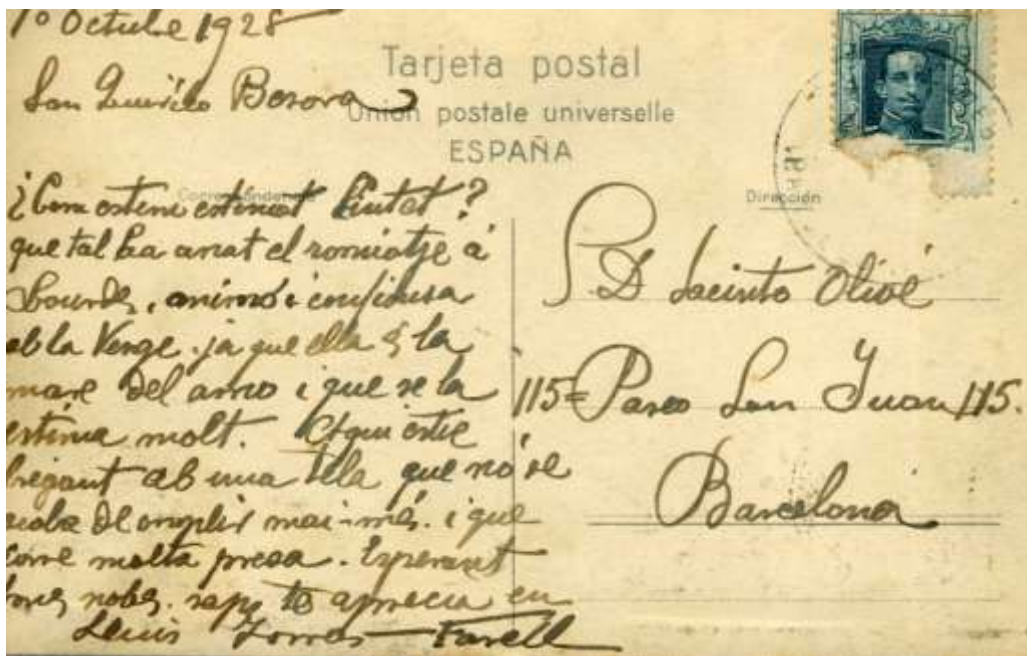 1º Octubre 1928
San Quirico Besora
Tarjeta postal
Unión postale universelle
ESPAÑA
Correspondencia
Dirección
¿Com estem estimat ?
que tal ha anat el romiatje á
Lourdes, animo i confiansa
ab la Verge. ja que ella es la
mare del amo i que se la
estima molt. Aqui estic
bregant ab una tela que no se
acaba de omplir mai-més. i que
corre molta presa. Esperant
bones nobes. sap te aprecia en
Lluis Torras Farell
S. D. Jacinto Olivé
115= Paseo San Juan 115.
Barcelona